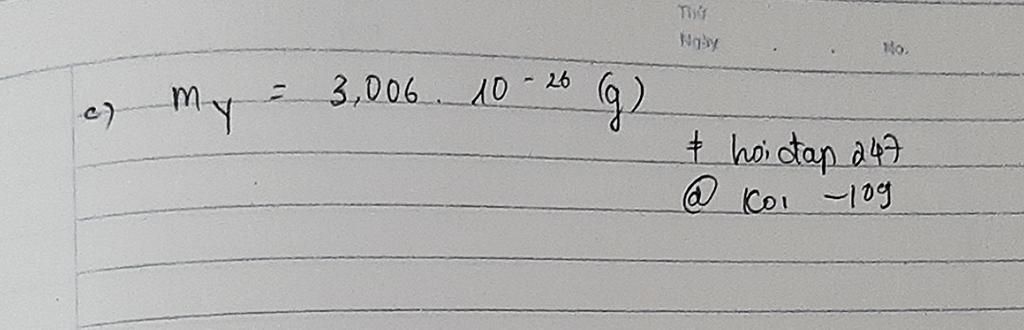 Thứ
Ngày . . No.
c) m_Y = 3,006 . 10^-26 (g)
# hoidtap 247
@ Koi -109